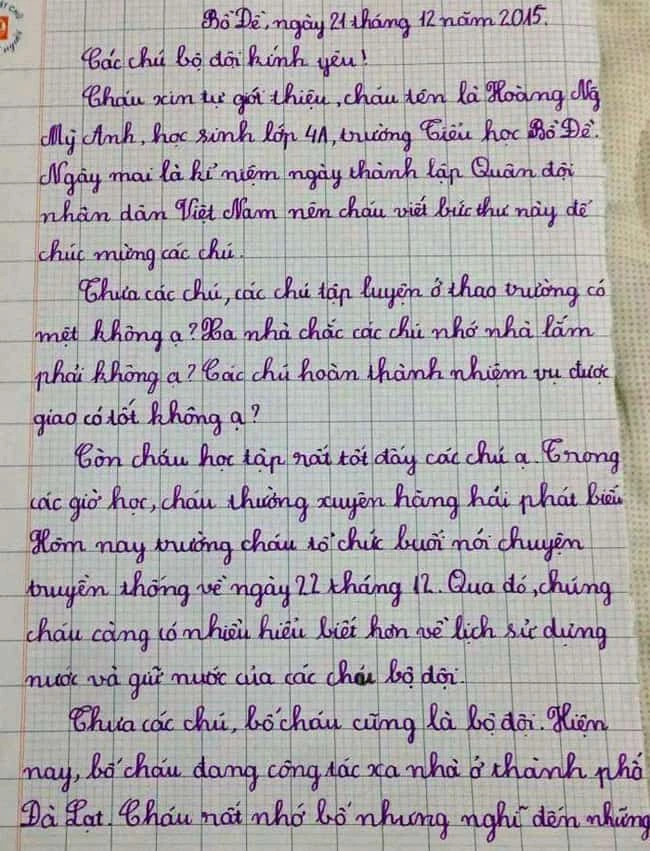 Bồ Đề, ngày 21 tháng 12 năm 2015.
Các chú bộ đội kính yêu!
Cháu xin tự giới thiệu, cháu tên là Hoàng Ng
Mỹ Anh, học sinh lớp 4A, trường Tiểu học Bồ Đề.
Ngày mai là kỉ niệm ngày thành lập Quân đội
nhân dân Việt Nam nên cháu viết bức thư này để
chúc mừng các chú.
Thưa các chú, các chú tập luyện ở thao trường có
mệt không ạ? Xa nhà chắc các chú nhớ nhà lắm
phải không ạ? Các chú hoàn thành nhiệm vụ được
giao có tốt không ạ?
Còn cháu học tập rất tốt đấy các chú ạ. Trong
các giờ học, cháu thường xuyên hăng hái phát biểu
Hôm nay trường cháu tổ chức buổi nói chuyện
truyền thống về ngày 22 tháng 12. Qua đó, chúng
cháu càng có nhiều hiểu biết hơn về lịch sử dựng
nước và giữ nước của các cháu bộ đội.
Thưa các chú, bố cháu cũng là bộ đội. Hiện
nay, bố cháu đang công tác xa nhà ở thành phố
Đà Lạt. Cháu rất nhớ bố nhưng nghĩ đến những